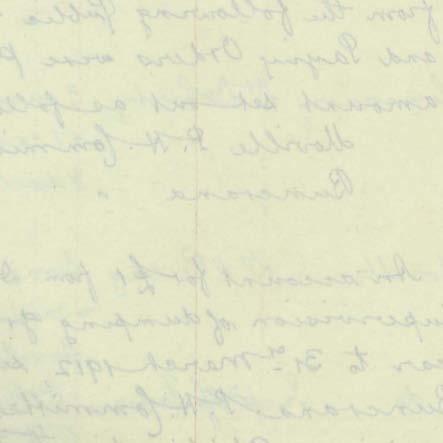 from the following Public
and Paying Orders were
amount set out as
Moville P. H.
Buncrana "
An account for £1 from
supervision of dumping
to 31st March 1912
Buncrana P. H. Committee